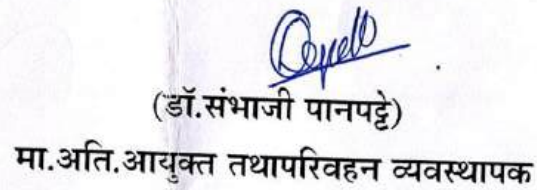 (डॉ.संभाजी पानपट्टे)
मा.अति.आयुक्त तथापरिवहन व्यवस्थापक